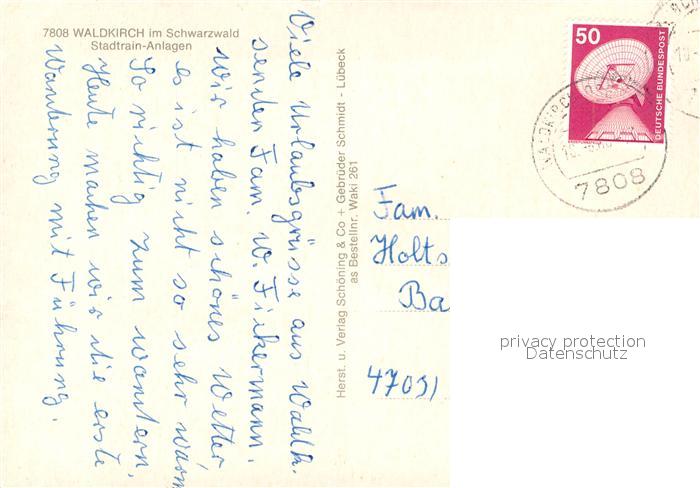 7808 WALDKIRCH im Schwarzwald
Stadtrain-Anlagen
Viele Urlaubsgrüsse aus Waldk.
senden Fam. W. Fickermann.
Wir haben schönes Wetter
es ist nicht so sehr warm
So richtig zum wandern,
Heute machen wir die erste
Wanderung mit Führung.
Herst. u. Verlag Schöning & Co + Gebrüder Schmidt - Lübeck
as Bestellnr. Waki 261
50
DEUTSCHE BUNDESPOST
WALDKIRCH
7808
Fam.
Holts
Ba
4703/
privacy protection
Datenschutz